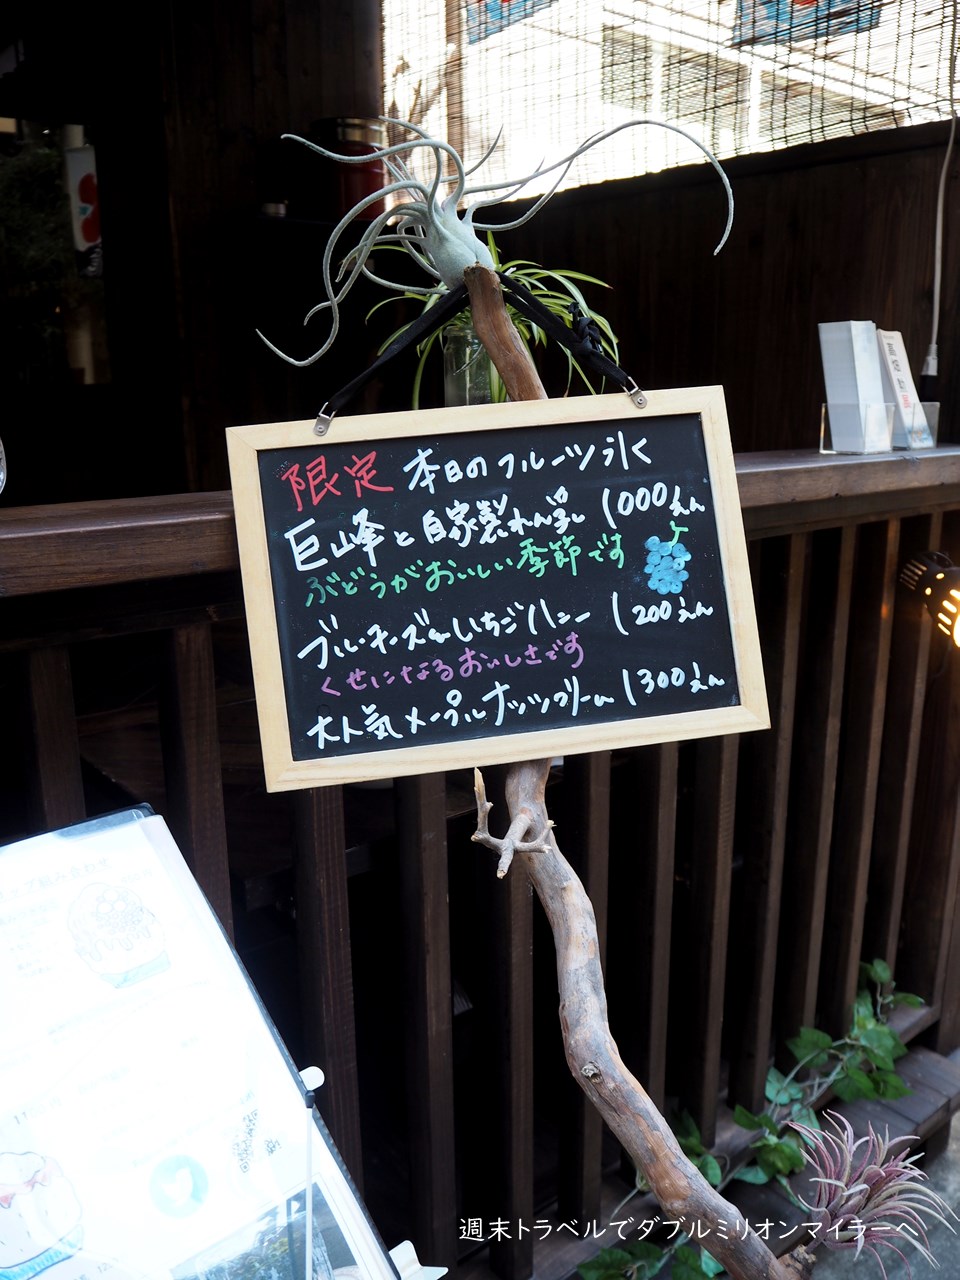 限定 本日のフルーツ氷
巨峰と自家製れん乳 1000えん
ぶどうがおいしい季節です
ブルーチーズ&いちごハニー 1200えん
くせになるおいしさです
大人気メープルナッツクリーム 1300えん
組み合わせ
週末トラベルでダブルミリオンマイラーへ